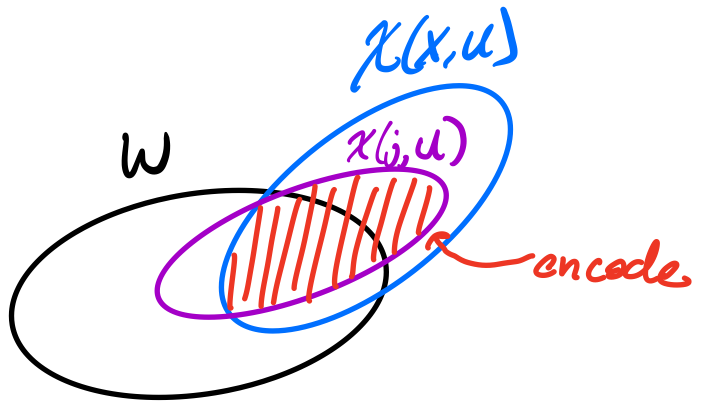 X(x,u)
X(j,u)
W
encode